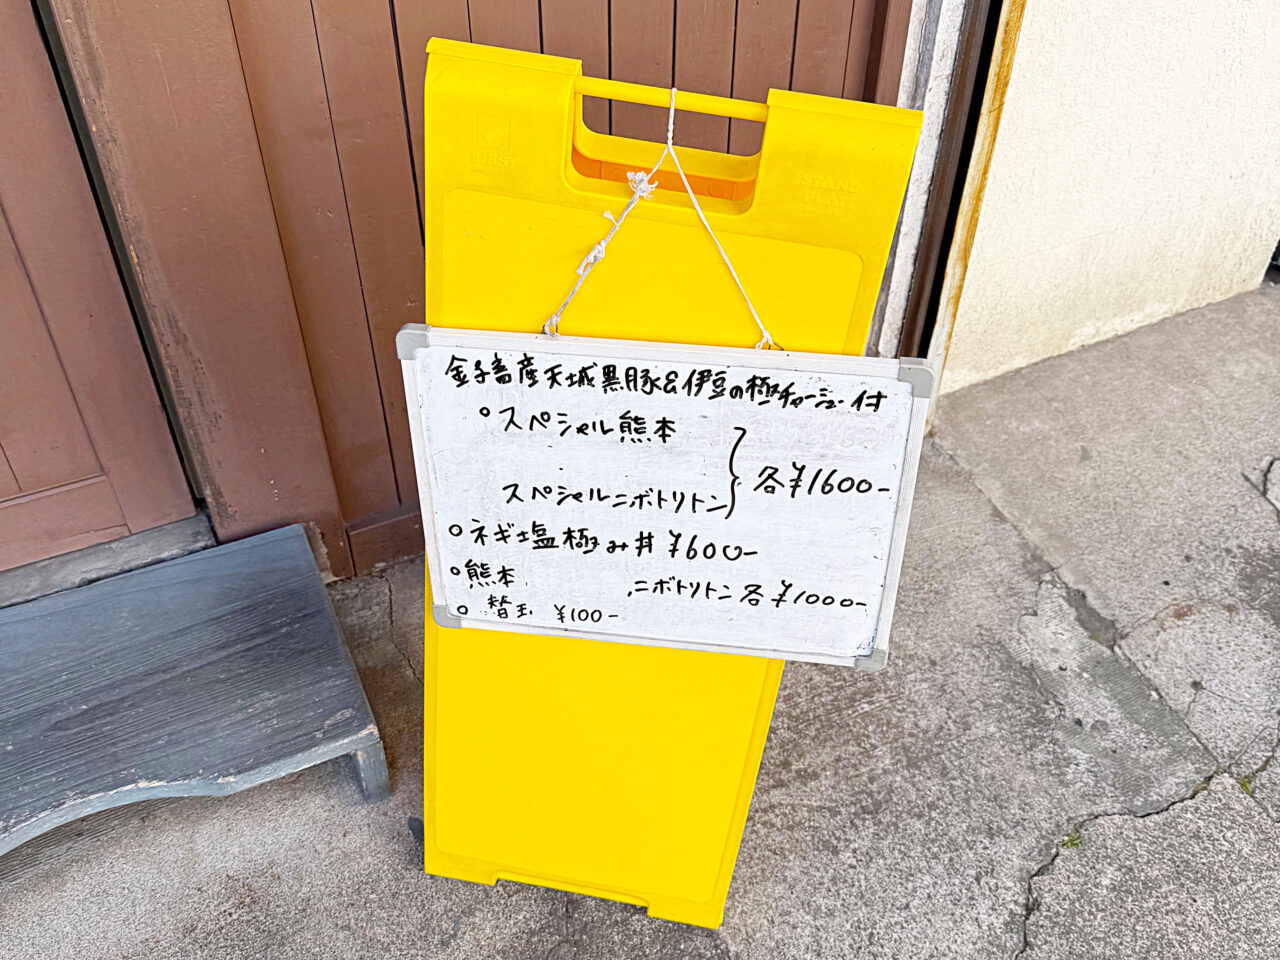 FIRST
STAND
金子畜産天城黒豚&伊豆の極チャーシュー付
○スペシャル熊本
スペシャルニボトリトン
各¥1600-
○ネギ塩極み丼 ¥600-
○熊本 ニボトリトン各¥1000-
○替玉 ¥100-